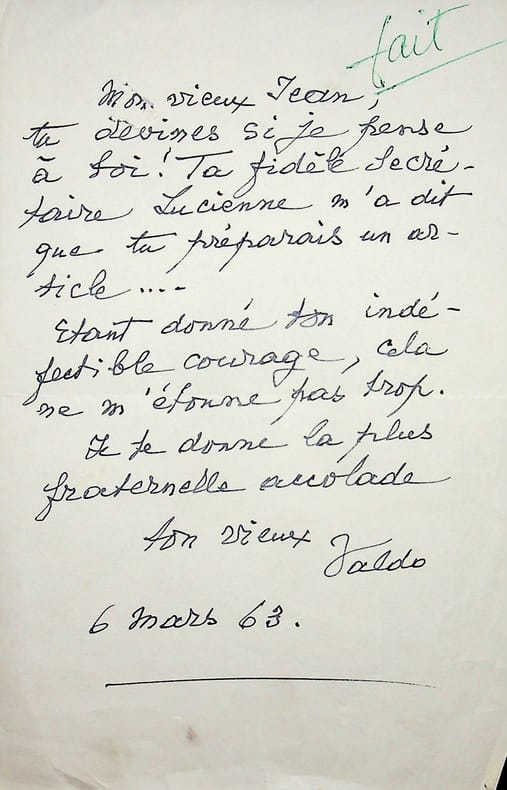 fait
Mon vieux Jean,
tu devines si je pense
à toi! Ta fidèle Secré-
taire Lucienne m'a dit
que tu préparais un ar-
ticle....
Etant donné ton indé-
fectible courage, cela
ne m'étonne pas trop.
Je te donne la plus
fraternelle accolade
ton vieux
Valdo
6 Mars 63.